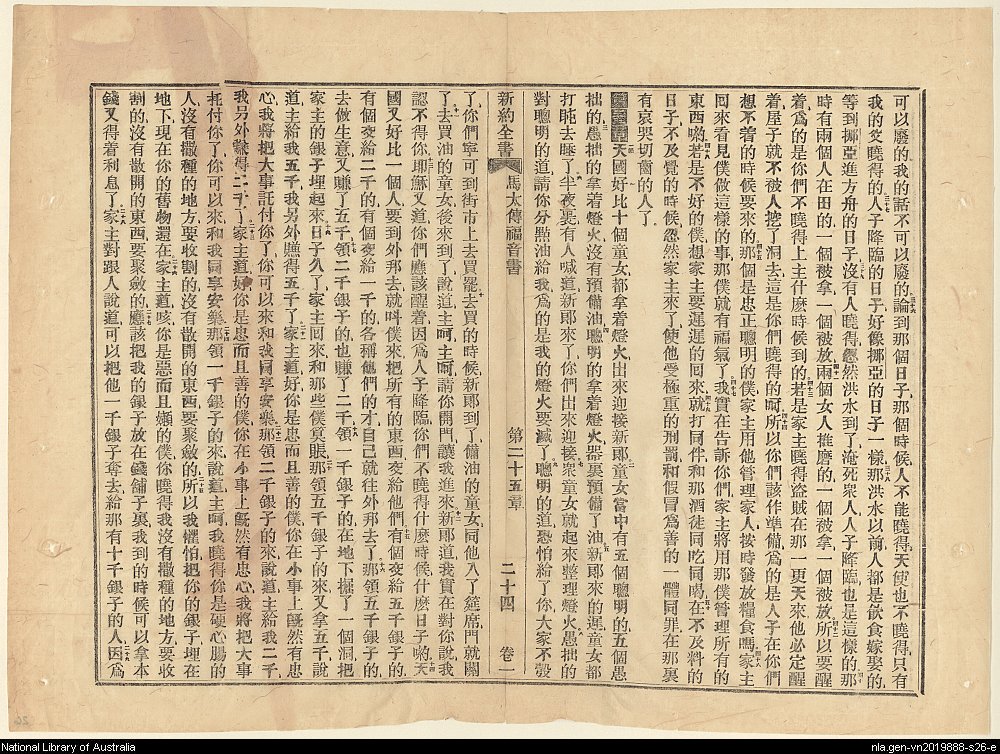 可以廢的我的話不可以廢的論到那個日子那個時候人不能曉得天使也不曉得只有
我的父曉得的人子降臨的日子好像挪亞的日子一樣那洪水以前人都是飲食嫁娶的
等到挪亞進方舟的日子沒有人曉得忽然洪水到了淹死衆人人子降臨也是這樣的那
時有兩個人在田的一個被拿一個被放兩個女人推磨的一個被拿一個被放所以要醒
着爲的是你們不曉得上主什麽時候到的若是家主曉得盜賊在那一更天來他必定醒
着屋子就不被人挖了洞去這是你們曉得的呵所以你們該作準備爲的是人子在你們
想不着的時候要來的那個是忠正聰明的僕家主用他管理家人按時發放糧食嗎家主
回來看見僕做這樣的事那僕就有福氣了我實在告訴你們家主將用那僕管理所有的
東西喲若是不好的僕想家主要遲遲的回來就打同伴和那酒徒同吃同喝在不及料的
日子不及覺的時候忽然家主來了使他受極重的刑罰和假冒爲善的一體同罪在那裏
有哀哭切齒的人了
天國好比十個童女都拿着燈火出來迎接新郎童女當中有五個聰明的五個愚
拙的愚拙的拿着燈火沒有預備油聰明的拿着燈火器裏預備了油新郎來的遲童女都
打盹去睡了半夜裏有人喊道新郎來了你們出來迎接衆童女就起來整理燈火愚拙的
對聰明的道請你分點油給我爲的是我的燈火要滅了聰明的道恐怕給了你大家不彀
新約全書 馬太傳福音書 第二十五章 二十四 卷一
了你們寧可到街市上去買罷去買的時候新郎到了備油的童女同他入了筵席門就關
了去買油的童女後來到了說道主呵主呵請你開門讓我進來新郎道我實在對你說我
認不得你耶穌又道你們應該醒着因爲人子降臨你們不曉得什麽時候什麽日子喲天
國又好比一個人要到外邦去就呌僕來把所有的東西交給他們有個交給五千銀子的
有個交給二千的有個交給一千的各稱他們的才自己就往外邦去了那領五千銀子的
去做生意又賺了五千領二千銀子的也賺了二千領一千銀子的在地下掘了一個洞把
家主的銀子埋起來日子久了家主回來和那些僕算賬那領五千銀子的來又拿五千說
道主給我五千我另外賺得五千了家主道好你是忠而且善的僕你在小事上旣然有忠
心我將把大事託付你了你可以來和我同享安樂那領二千銀子的來說道主給我二千
我另外賺得二千了家主道好你是忠而且善的僕你在小事上旣然有忠心我將把大事
托付你了你可以來和我同享安樂那領一千銀子的來說道主呵我曉得你是硬心腸的
人沒有撒種的地方要收割的沒有散開的東西要聚斂的所以我懼怕把你的銀子埋在
地下現在你的舊物還在家主道咳你是惡而且嬾的僕你曉得我沒有撒種的地方要收
割的沒有散開的東西要聚斂的應該把我的銀子放在錢舖子裏我到的時候可以拿本
錢又得着利息了家主對跟人說道可以把他一千銀子奪去給那有十千銀子的人因爲
National Library of Australia
nla.gen-vn2019888-s26-e